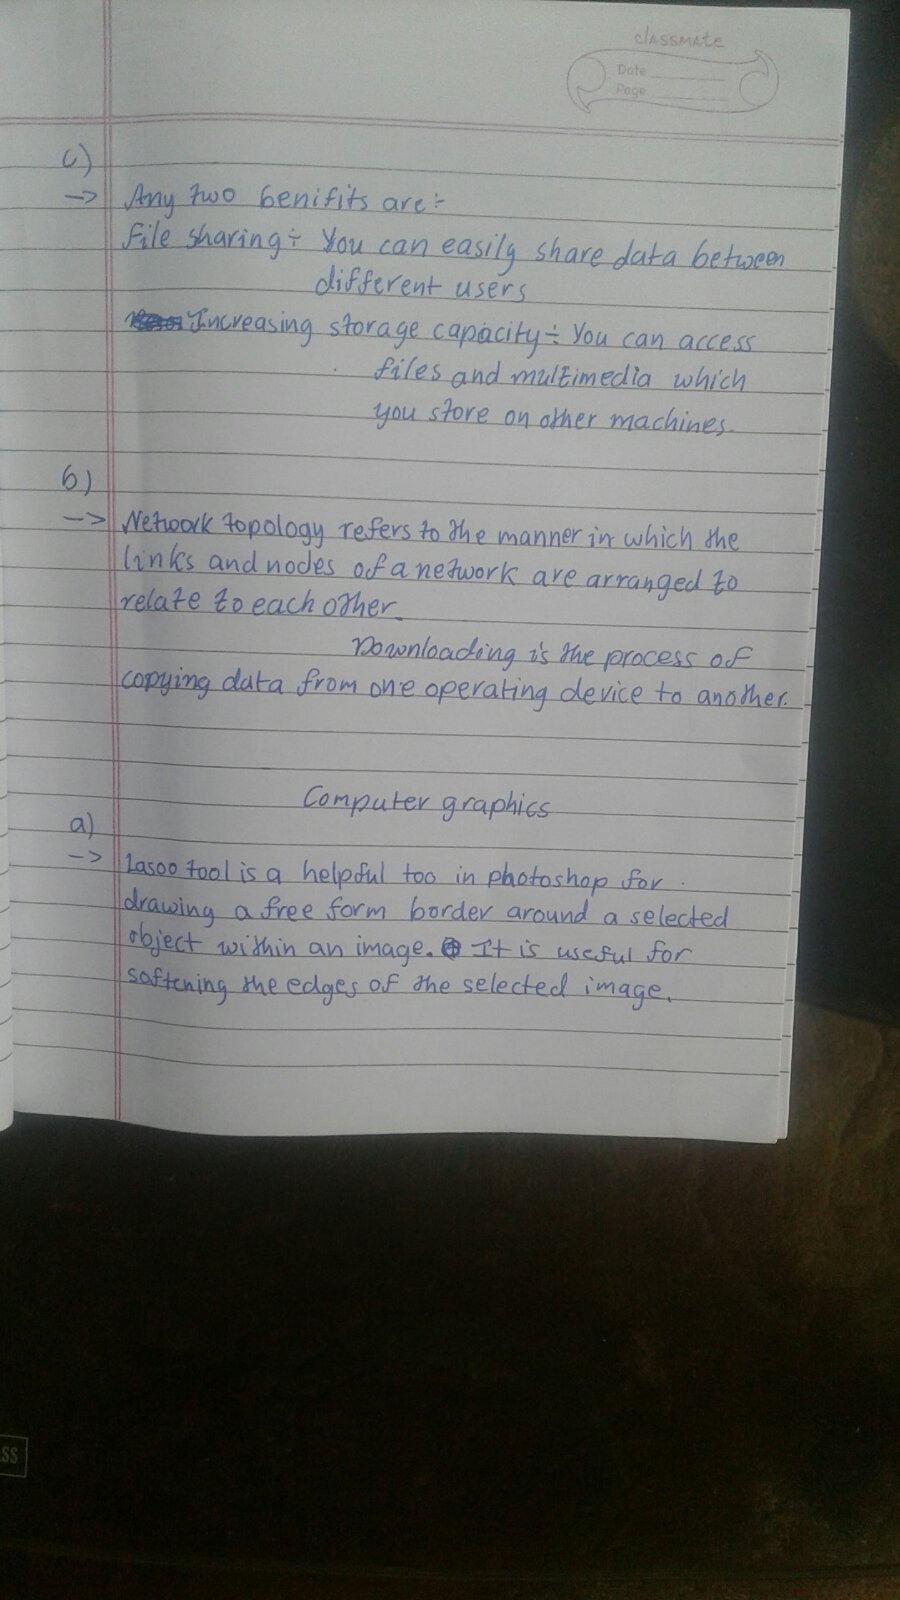 classmate
Date
Page
c)
-> Any two benifits are:-
File sharing:- You can easily share data between
different users
Increasing storage capacity:- You can access
files and multimedia which
you store on other machines.
b)
-> Network topology refers to the manner in which the
links and nodes of a network are arranged to
relate to each other.
Downloading is the process of
copying data from one operating device to another.
Computer graphics
a)
-> Lasoo tool is a helpful too in photoshop for
drawing a free form border around a selected
object within an image. It is useful for
softening the edges of the selected image.
SS